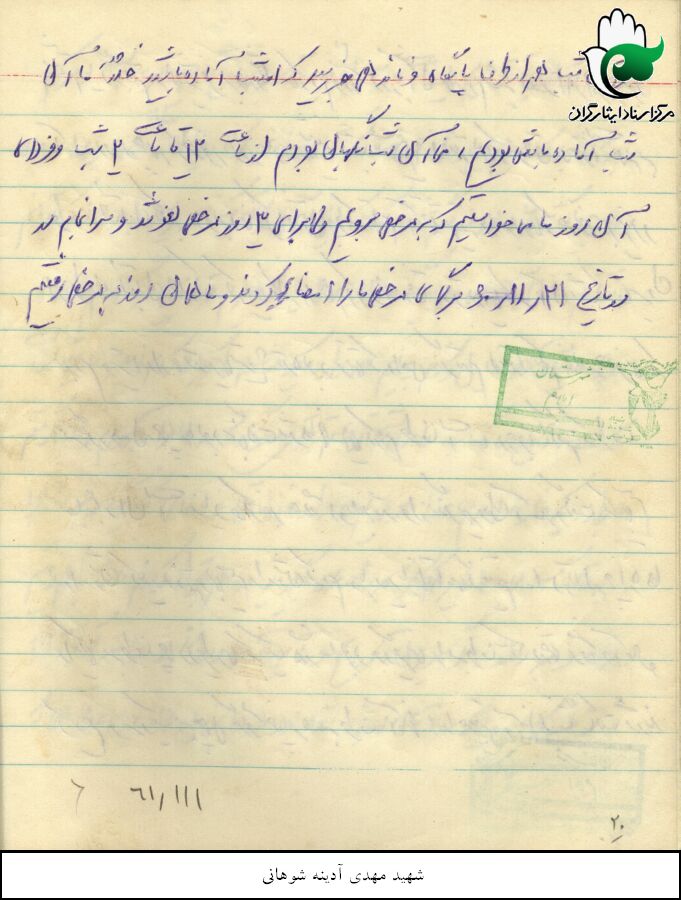 مرکز اسناد ایثارگران
شب هم از طرف پایگاه فرماندهی خبر رسید که امشب آماده باشید خلاصه ما آن
شب آماده باش بودیم، من آن شب نگهبان بودم از ساعت ۱۲ تا ساعت ۲ شب و فردای
آن روز ما می خواستیم که به مرخصی برویم ولی برای ۳ روز مرخصی لغو شد و سرانجام در
در تاریخ ۲۱ ر ۱۱ ر ۶۰ برگه‌های مرخصی ما را امضاء کردند و ما همان روز به مرخصی رفتیم
شهرستان
ایلام
۶۱٫۱۱۱
۲۰
شهید مهدی آدینه شوهانی